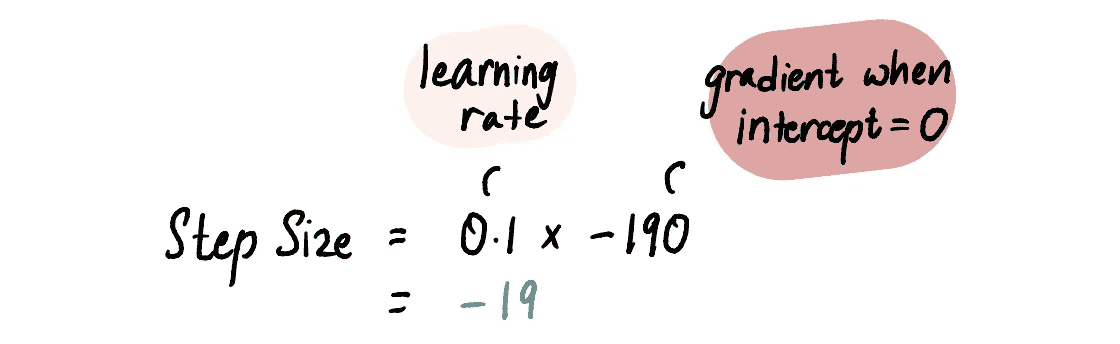 learning
rate
gradient when
intercept = 0
Step Size = 0.1 x -190
= -19